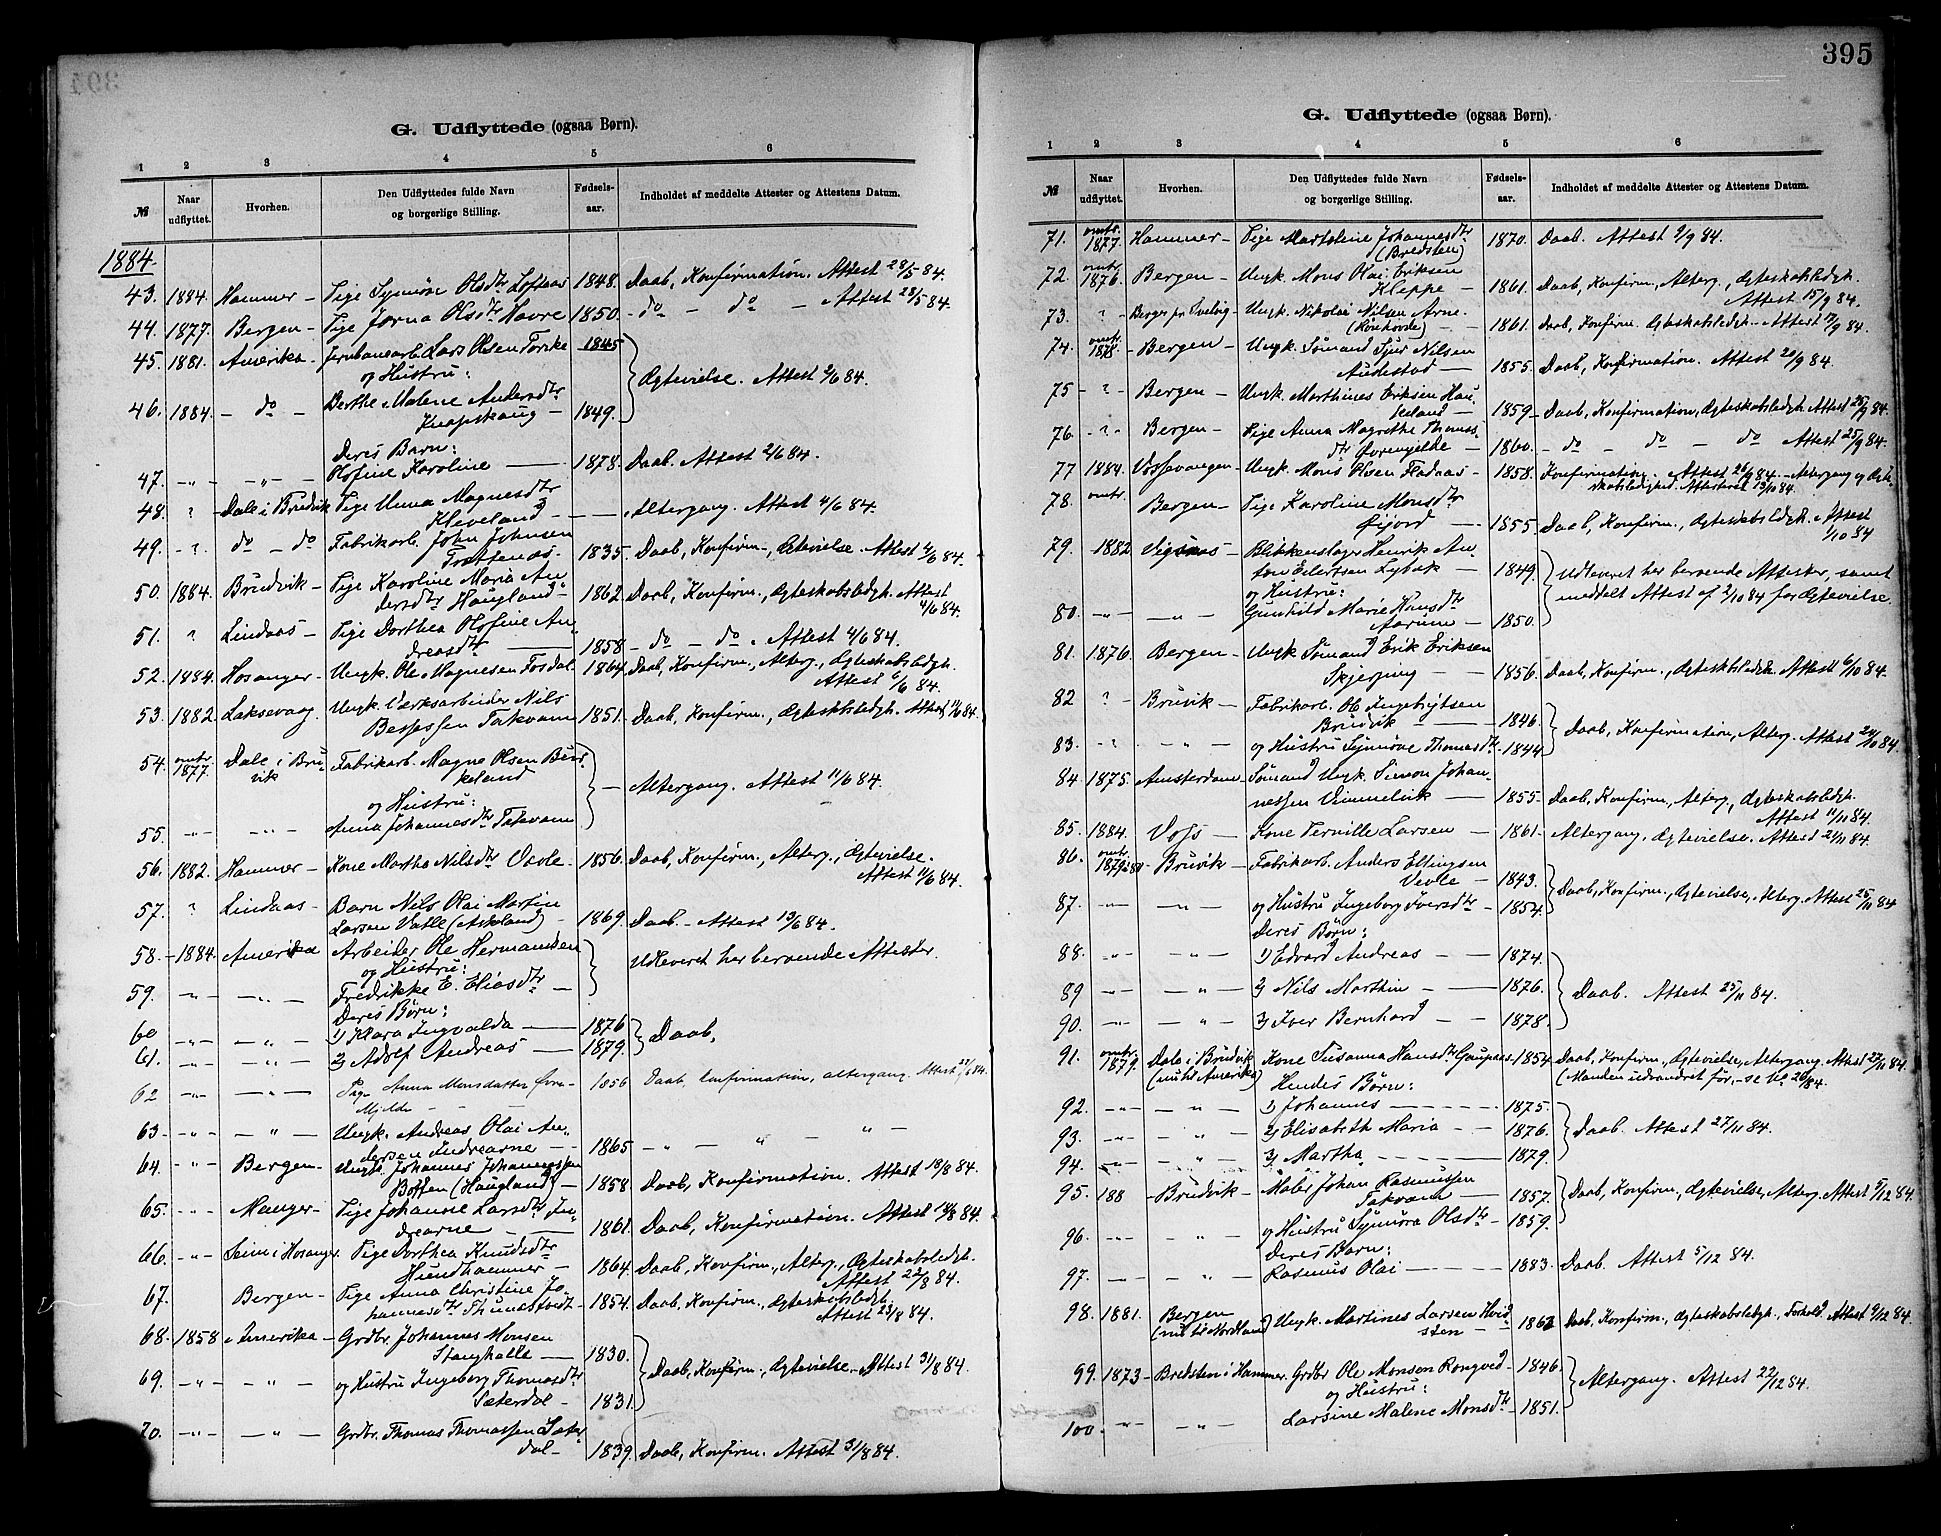 395
G. Udflyttede (ogsaa Børn).
1 2 3 4 5 6
№ Naar udflyttet. Hvorhen. Den Udflyttedes fulde Navn og borgerlige Stilling. Fødsels-aar. Indholdet af meddelte Attester og Attestens Datum.
1884
43. 1884. Hammer – Pige Synnøve Olsdtr Loftaas 1848. Daab, Konfirmation. Attest 28/5 84.
44. 1877. Bergen – Pige Jorna Olsdtr Havre 1850. – do – do – Attest 28/5 84.
45. 1881. Amerika – Jernbanearb. Lars Olsen Torske 1845
og Hustru:
46. 1884. – do – Berthe Malene Andersdtr
Knapskaug – 1849. Egtevielse. Attest 2/6 84.
Deres Barn:
47. –„– –„– Olofine Karoline – 1878. Daab. Attest 2/6 84.
48. ? Dale i Brudvik Pige Unna Magnesdtr
Kleveland – – Altergang. Attest 4/6 84.
49. – ? do – do Fabrikarb. John Johnsen
Trættenes – 1835. Daab, Konfirm., Egtevielse. Attest 4/6 84.
50. 1884. Brudvik – Pige Karoline Maria An
dersdtr Haugland – 1862 Daab, Konfirm., Egteskabsledgh. Attest
4/6 84.
51. ? Lindaas – Pige Dorthea Olofine An
dreasdtr – 1858 – do – do. Attest 4/6 84.
52. 1884. Hosanger – Ungk. Ole Magnesen Fosdal 1864. Daab, Konfirm., Alterg., Egteskabsledgh.
Attest 6/6 84.
53. 1882. Laksevaag. Ungk. Værksarbeider Nils
Berjesen Takvam 1851. Daab, Konfirm., Egteskabsledgh. Attest 11/6 84.
54. omtr. 1877. Dale i Bru
vik Fabrikarb. Magne Olsen Bur
keland
og Hustru: Altergang. Attest 11/6 84.
55. –„– –„– Anna Johannesdtr Takvam
56. 1882. Hammer – Kone Martha Nilsdtr Vevle – 1856. Daab, Konfirm., Alterg., Egtevielse.
Attest 11/6 84.
57. ? Lindaas – Barn Nils Olai Martin
Larsen Vatle (Askeland) – 1869. Daab. – Attest 13/6 84.
58. – 1884. Amerika Arbeider Ole Hermansen
og Hustru: Udleveret her beroende Attester.
59. –„– –„– Fredrikke E. Eliasdtr –
Deres Børn:
60 –„– –„– 1) Klara Ingvalda – 1876
61. –„– –„– 2) Adolf Andreas – 1879. Daab.
62 –„– –„– Pige Anna Monsdatter Øvre
Mjelde – – 1856 Daab, konfirmation, altergang. Attest 27/6 84.
63 –„– –„– Ungk. Andreas Olai An
dersen Indrearne – 1865 –„– „ – „ –
64. –„– Bergen – Ungk. Johannes Johannessen
Botten (Haugland) – 1858 Daab, Konfirmation. Attest 18/8 84.
65. –„– Manger – Pige Johanne Larsdtr In
drearne – 1861. Daab, Konfirmation. Attest 18/8 84.
66. –„– Seim i Hosanger. Pige Dorthea Knudsdtr
Hundhammer – 1864. Daab, Konfirm., Alterg., Egteskabsledgh.
Attest 22/8 84.
67. Bergen – Pige Anna Christine Jo
hannesdtr Thunestvedt – 1854. Daab, Konfirm., Egteskabsledgh.
Attest 23/8 84.
68. 1858 Amerika – Grdbr. Johannes Monsen
Stanghelle – 1830.
69. –„– –„– og Hustru Ingeborg Thomasdtr Daab, Konfirm., Egtevielse. Attest 31/8 84.
Sæterdal – 1831.
70. –„– –„– Grdbr. Thomas Thomassen Sæter
dal – 1839. Daab, Konfirm. Attest 31/8 84.
G. Udflyttede (ogsaa Børn).
1 2 3 4 5 6
№ Naar udflyttet. Hvorhen. Den Udflyttedes fulde Navn og borgerlige Stilling. Fødsels-aar. Indholdet af meddelte Attester og Attestens Datum.
71. omtr. 1877. Hammer – Pige Martoline Johannesdtr
(Bredsten) 1870. Daab. Attest 9/9 84.
72. omtr. 1876. Bergen – Ungk. Mons Olai Eriksen
Kleppe – 1861. Daab, Konfirm., Alterg., Egteskabsledgh.
Attest 15/9 84.
73. ? Bergen Ungk. Nikolai Nilsen Arne
– – 1861. Daab, Konfirm. Egteskabsledgh. Attest 17/9 84.
74. omtr. 1878. Bergen – Ungk. Sømand Sjur Nilsen
Audestad – 1855. Daab, Konfirmation. Attest 20/9 84.
75 – ? – Bergen – Ungk. Marthines Eriksen Hau
keland – 1859 – Daab, Konfirmation, Egteskabsledgh. Attest 25/9 84.
76. – ? – Bergen – Pige Anna Magrethe Thomas
dtr Øvremjelde – 1860. – do do – do Attest 25/9 84.
77 1884. Vossevangen – Ungk. Mons Olsen Fladaas – 1858. Konfirmation. Attest 26/9 84. – Altergang og Egte
skabsledighed. Attesteret 13/10 84.
78. omtr. Bergen – Pige Karoline Monsdtr
Gjord – 1855. Daab, Konfirm., Egteskabsledgh. Attest
1/10 84
79. 1882 Vigsnæs – Blikkenslager Henrik An
ton Eilertsen Lybæk – 1849. Udleveret her beroende Attester, samt
og Hustru: meddelt Attest af 2/10 84 for Egtevielse.
80. –„– –„– Gunhild Marie Hansdtr
Aarum – 1850.
81. 1876. Bergen – Ungk Sømand Erik Eriksen
Skjerping – – 1856. Daab, Konfirm., Egteskabsledgh. Attest 6/10 84.
82 ? Bruvik – Fabrikarb. Ole Ingebrigtsen
Brudvik – 1846. Daab, Konfirmation, Alterg. Attest 24/10 84
83. – ? – –„– og Hustru Synnøve Thomasdtr – 1844
84 1875. Amsterdam – Sømand Ungk. Simon Johan
nessen Vimmelvik – 1855 – Daab, Konfirm., Alterg., Egteskabsledgh.
Attest 11/11 84.
85. 1884. Voss – Kone Pernille Larsen – 1861. Altergang. Egtevielse. Attest 21/11 84.
86. omtr. 1879 a 80 Bruvik – Fabrikarb. Anders Ellingsen
Vevle – 1843. Daab, Konfirm., Egtevielse, Alterg. Attest 25/11 84
87. –„– –„– og Hustru Ingeborg Iversdtr – 1854.
Deres Børn:
88. –„– –„– 1) Edvard Andreas – – 1874.
89 –„– –„– 2) Nils Marthin – – 1876. Daab. Attest 25/11 84.
90. –„– –„– 3) Iver Bernhard – – 1878.
91. omtr. 1879. Dale i Brudvik
(nu til Amerika) Kone Susanna Hansdtr Gaupaas – 1854. Daab, Konfirm., Egtevielse, Altergang. Attest 27/11 84.
Hendes Børn: (Manden udvandret før, – se No 26/84.
92. –„– –„– 1) Johannes – 1875.
93. –„– –„– 2) Elisabeth Maria – – 1876. Daab. Attest 27/11 84.
94. –„– –„– 3) Martha – 1879.
95. 188 – Brudvik – Maler Johan Rasmussen
Takvam – 1857. Daab, Konfirm., Egtevielse, Alterg. Attest 5/12 84.
96. –„– –„– og Hustru Synnøva Olsdtr – 1859.
Deres Barn:
97. –„– –„– Rasmus Olai – 1883. Daab. Attest 5/12 84.
98. 1881. Bergen
(nu til Nordland) Ungk. Martines Larsen Hvid
sten – 1862 Daab, Konfirm., Egteskabsledgh. Forhold. Attest 9/12 84.
99. 1873 – Bredsten i Hammer. Grdbr. Ole Monsen Rongved – 1846.
og Hustru: Altergang. Attest 22/12 84.
100. –„– –„– Larsine Malene Monsdtr – 1851.